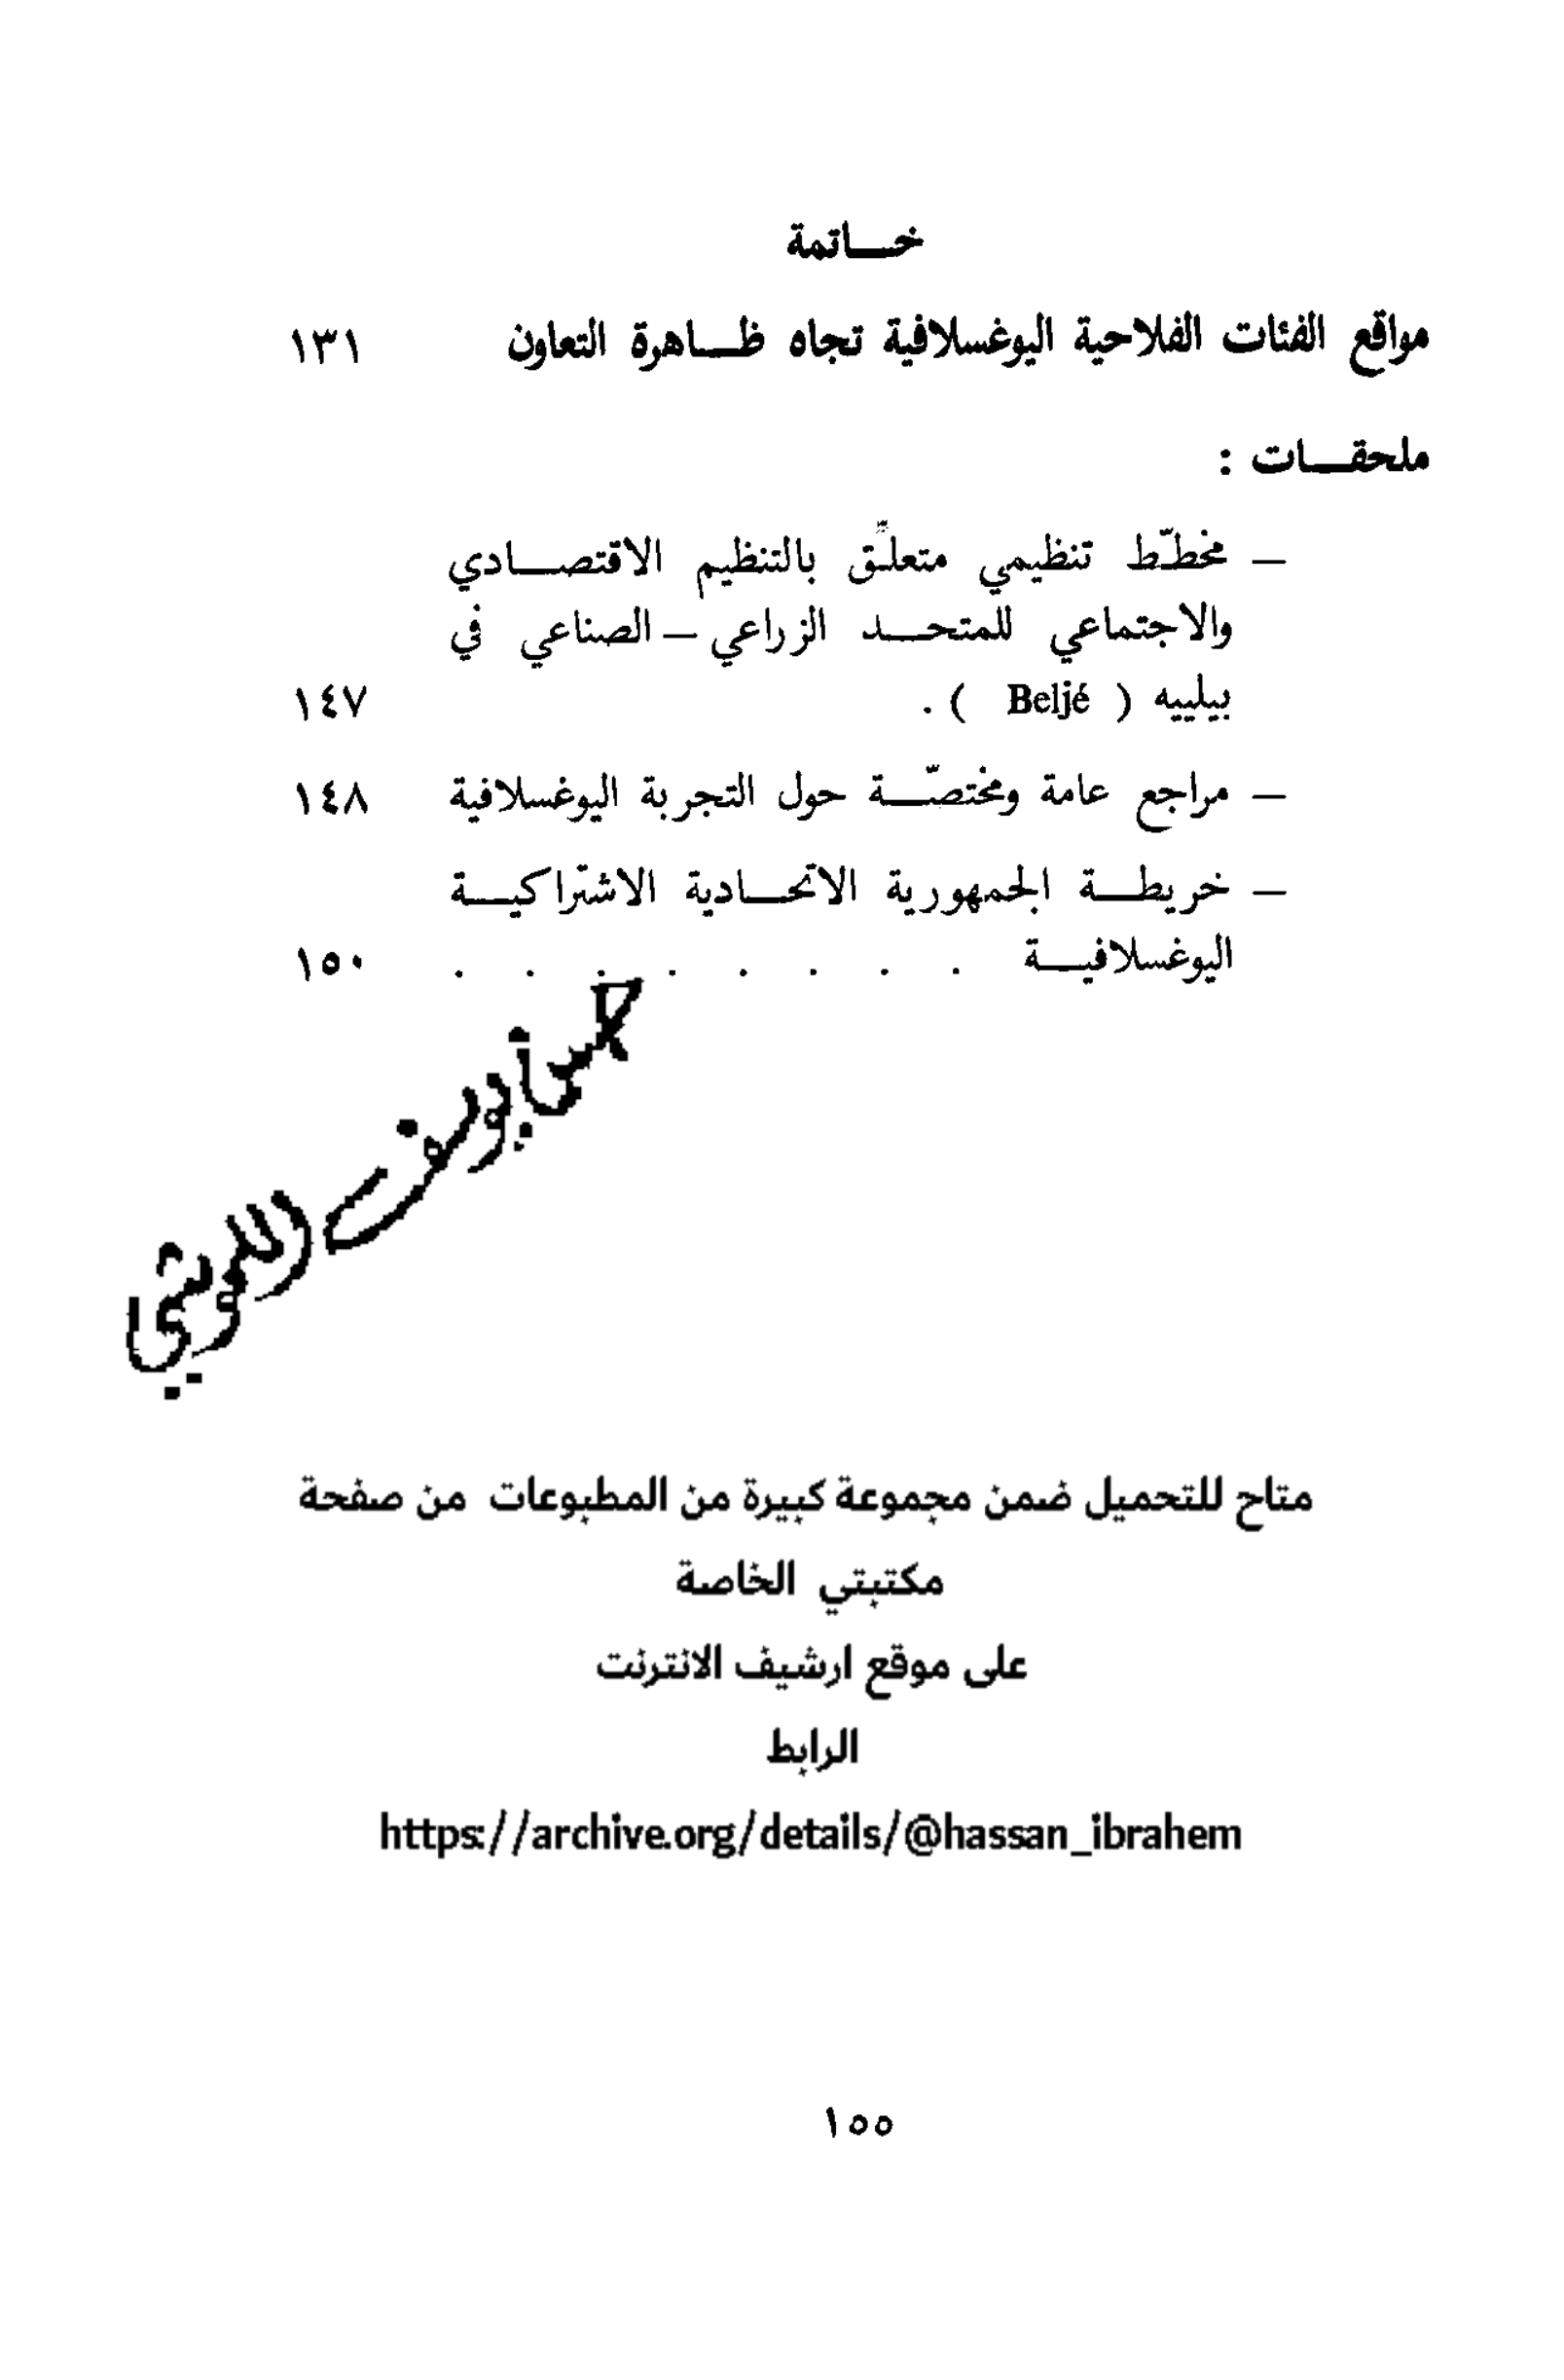 خاتمة
مواقع الفئات الفلاحية اليوغسلافية تجاه ظاهرة التعاون ١٣١
ملحقات :
— مخطّط تنظيمي متعلّق بالتنظيم الاقتصادي
والاجتماعي للمتحد الزراعي — الصناعي في
بيلييه ( Beljé ) . ١٤٧
— مراجع عامة ومختصّة حول التجربة اليوغسلافية ١٤٨
— خريطة الجمهورية الاتحادية الاشتراكية
اليوغسلافية . . . . . . . . ١٥٠
متاح للتحميل ضمن مجموعة كبيرة من المطبوعات من صفحة
مكتبتي الخاصة
على موقع ارشيف الانترنت
الرابط
https://archive.org/details/@hassan_ibrahem
١٥٥